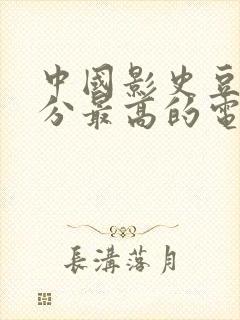 中國影史豆
分最高的電
長溝落月